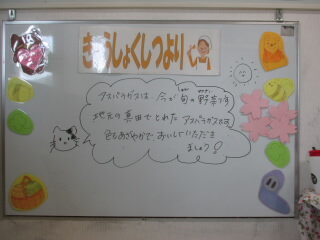 きゅうしょくしつより
アスパラガスは、今が旬の野菜です
地元の真田でとれたアスパラガスです
色もあざやかでおいしくいただき
ましょう!